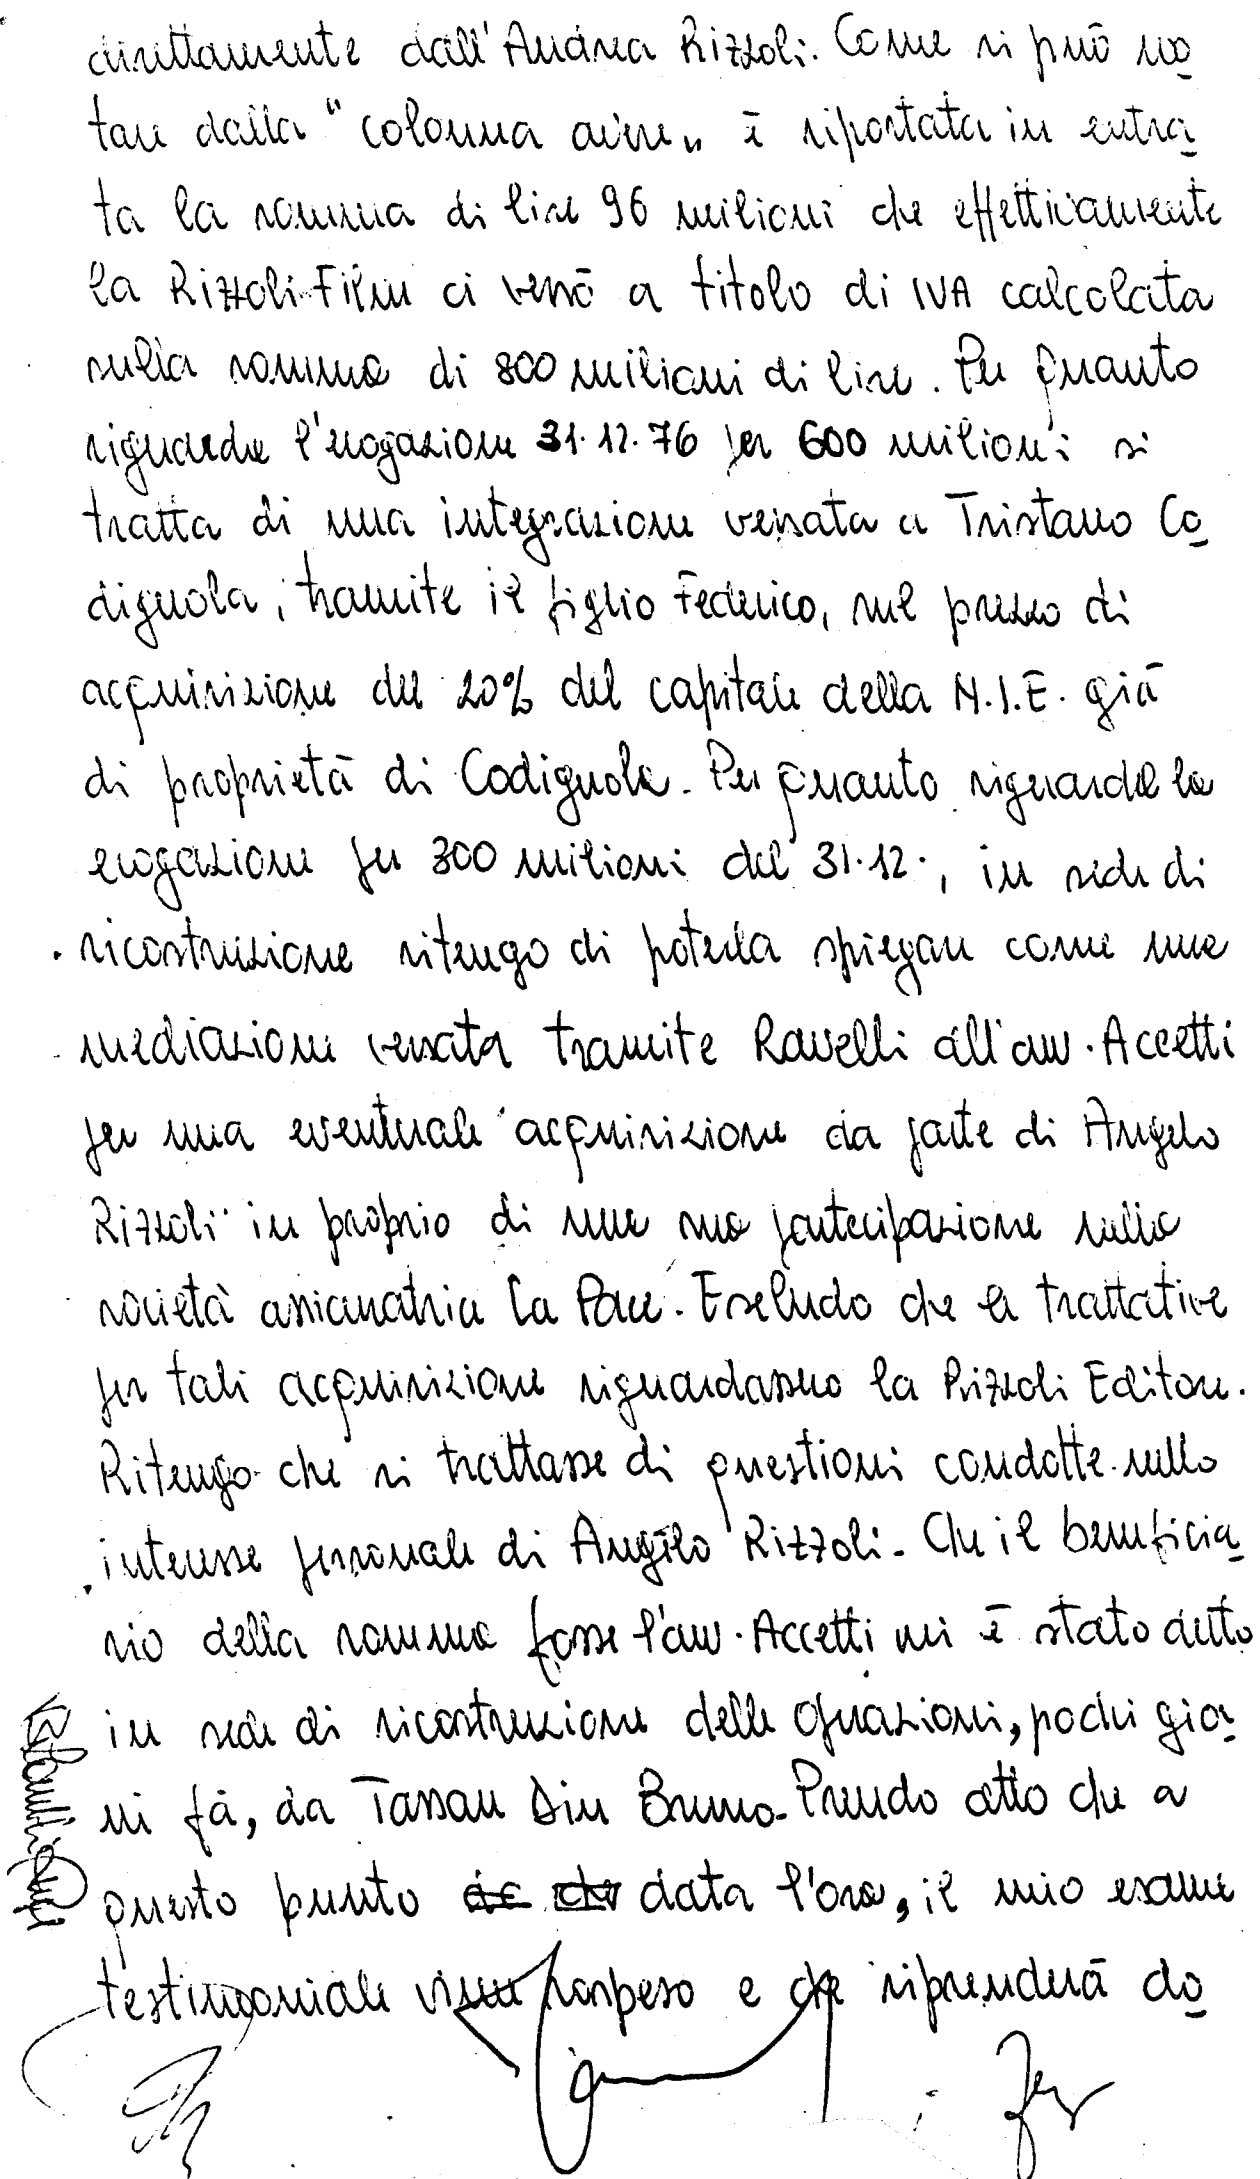 direttamente dall'Andrea Rizzoli. Come si può no
tare dalla "colonna avere" è riportata in entra
ta la somma di lire 96 milioni che effettivamente
la Rizzoli Film ci versò a titolo di IVA calcolata
sulla somma di 800 milioni di lire. Per quanto
riguarda l'erogazione 31.12.76 per 600 milioni si
tratta di una integrazione versata a Tristano Co
dignola, tramite il figlio Federico, sul prezzo di
acquisizione del 20% del capitale della N.I.E. già
di proprietà di Codignola. Per quanto riguarda la
erogazione per 300 milioni del 31.12., in sede di
ricostruzione ritengo di poterla spiegare come una
mediazione versata tramite Ravelli all'avv. Accetti
per una eventuale acquisizione da parte di Angelo
Rizzoli in proprio di una sua partecipazione nella
società assicuratrice La Pace. Escludo che le trattative
per tali acquisizione riguardassero la Rizzoli Editore.
Ritengo che si trattasse di questioni condotte nello
interesse personale di Angelo Rizzoli. Che il beneficia
rio della somma fosse l'avv. Accetti mi è stato detto
in sede di ricostruzione delle operazioni, pochi gior
ni fà, da Tassan Din Bruno. Prendo atto che a
questo punto data l'ora, il mio esame
testimoniale viene sospeso e che riprenderà do